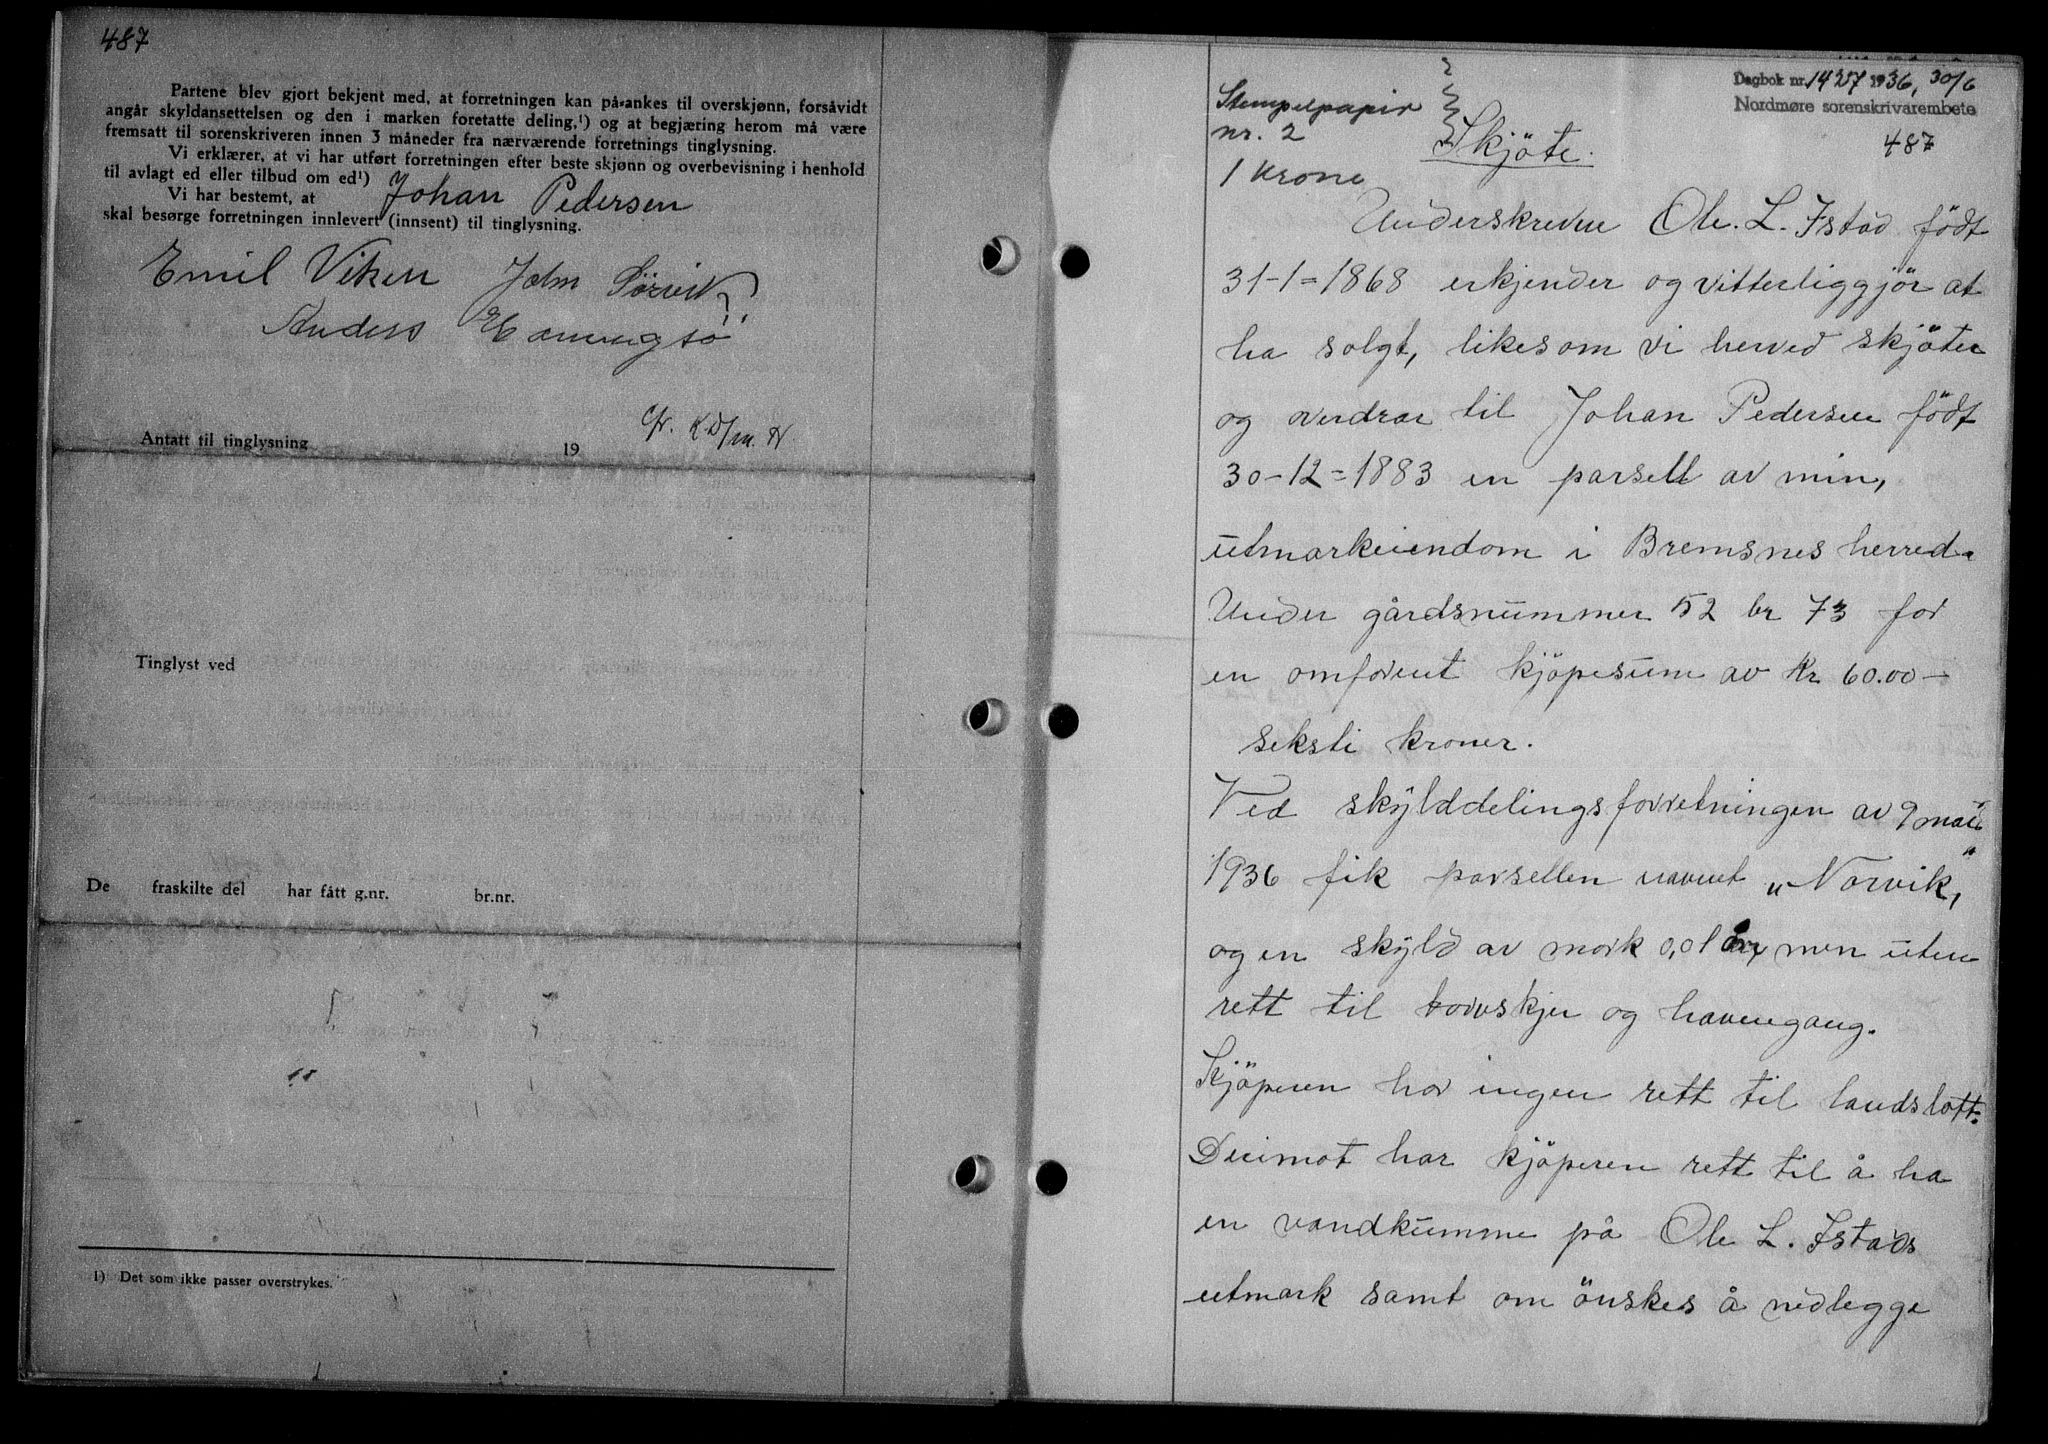 487
Partene blev gjort bekjent med, at forretningen kan på-ankes til overskjønn, forsåvidt
angår skyldansettelsen og den i marken foretatte deling,¹) og at begjæring herom må være
fremsatt til sorenskriveren innen 3 måneder fra nærværende forretnings tinglysning.
Vi erklærer, at vi har utført forretningen efter beste skjønn og overbevisning i henhold
til avlagt ed eller tilbud om ed¹)
Vi har bestemt, at Johan Pedersen
skal besørge forretningen innlevert (innsent) til tinglysning.
Emil Viken John Sørvik
Anders
Antatt til tinglysning 19
Tinglyst ved
De fraskilte del har fått g.nr. br.nr.
1) Det som ikke passer overstrykes.
Dagbok nr. 1427 1936, 30/6
Nordmøre sorenskrivarembete
487
Stempelpapir
nr. 2
1 Krone
Skjöte.
Underskrevne Ole. L. Istad födt
31-1=1868 erkjender og vitterliggjör at
ha solgt, likesom vi herved skjöter
og overdrar til Johan Pedersen födt
30-12=1883 en parsell av min,
utmarkeiendom i Bremsnes herred.
Under gårdsnummer 52 br 73 for
en omforent kjöpesum av Kr 60.00-
seksti kroner.
Ved skylddelingsforretningen av 9 mai
1936 fik parsellen navnet „Norvik",
og en skyld av mark 0,01 men uten
rett til torvskjer og havnegang.
Kjöperen har ingen rett til landslott.
Derimot har kjöperen rett til å ha
en vandkumme på Ole L. Istads
utmark samt om önskes å nedlegge